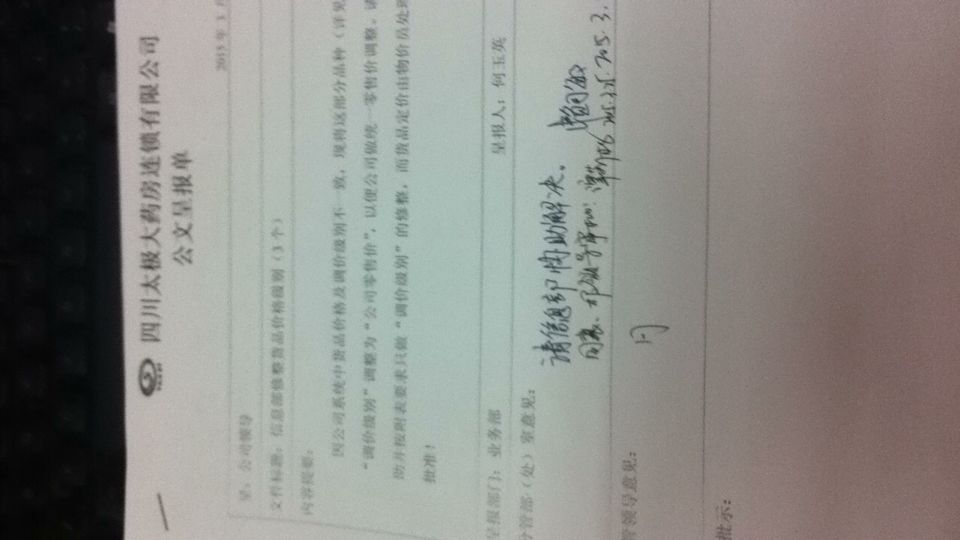 四川太极大药房连锁有限公司
公文呈报单
2015年3月
呈：公司领导
文件标题：信息部修整货品价格级别（3个）
内容提要：
因公司系统中货品价格及调价级别不一致，现将这部分品种（详见
“调价级别”调整为“公司零售价”，以便公司做统一零售价调整。请
助并按附表要求只做“调价级别”的修整，而货品定价由物价员处理
批准！
呈报部门：业务部 呈报人：何玉英
分管部（处）室意见：
请信息部协助解决。
同意 2015.3.
管领导意见：
批示：